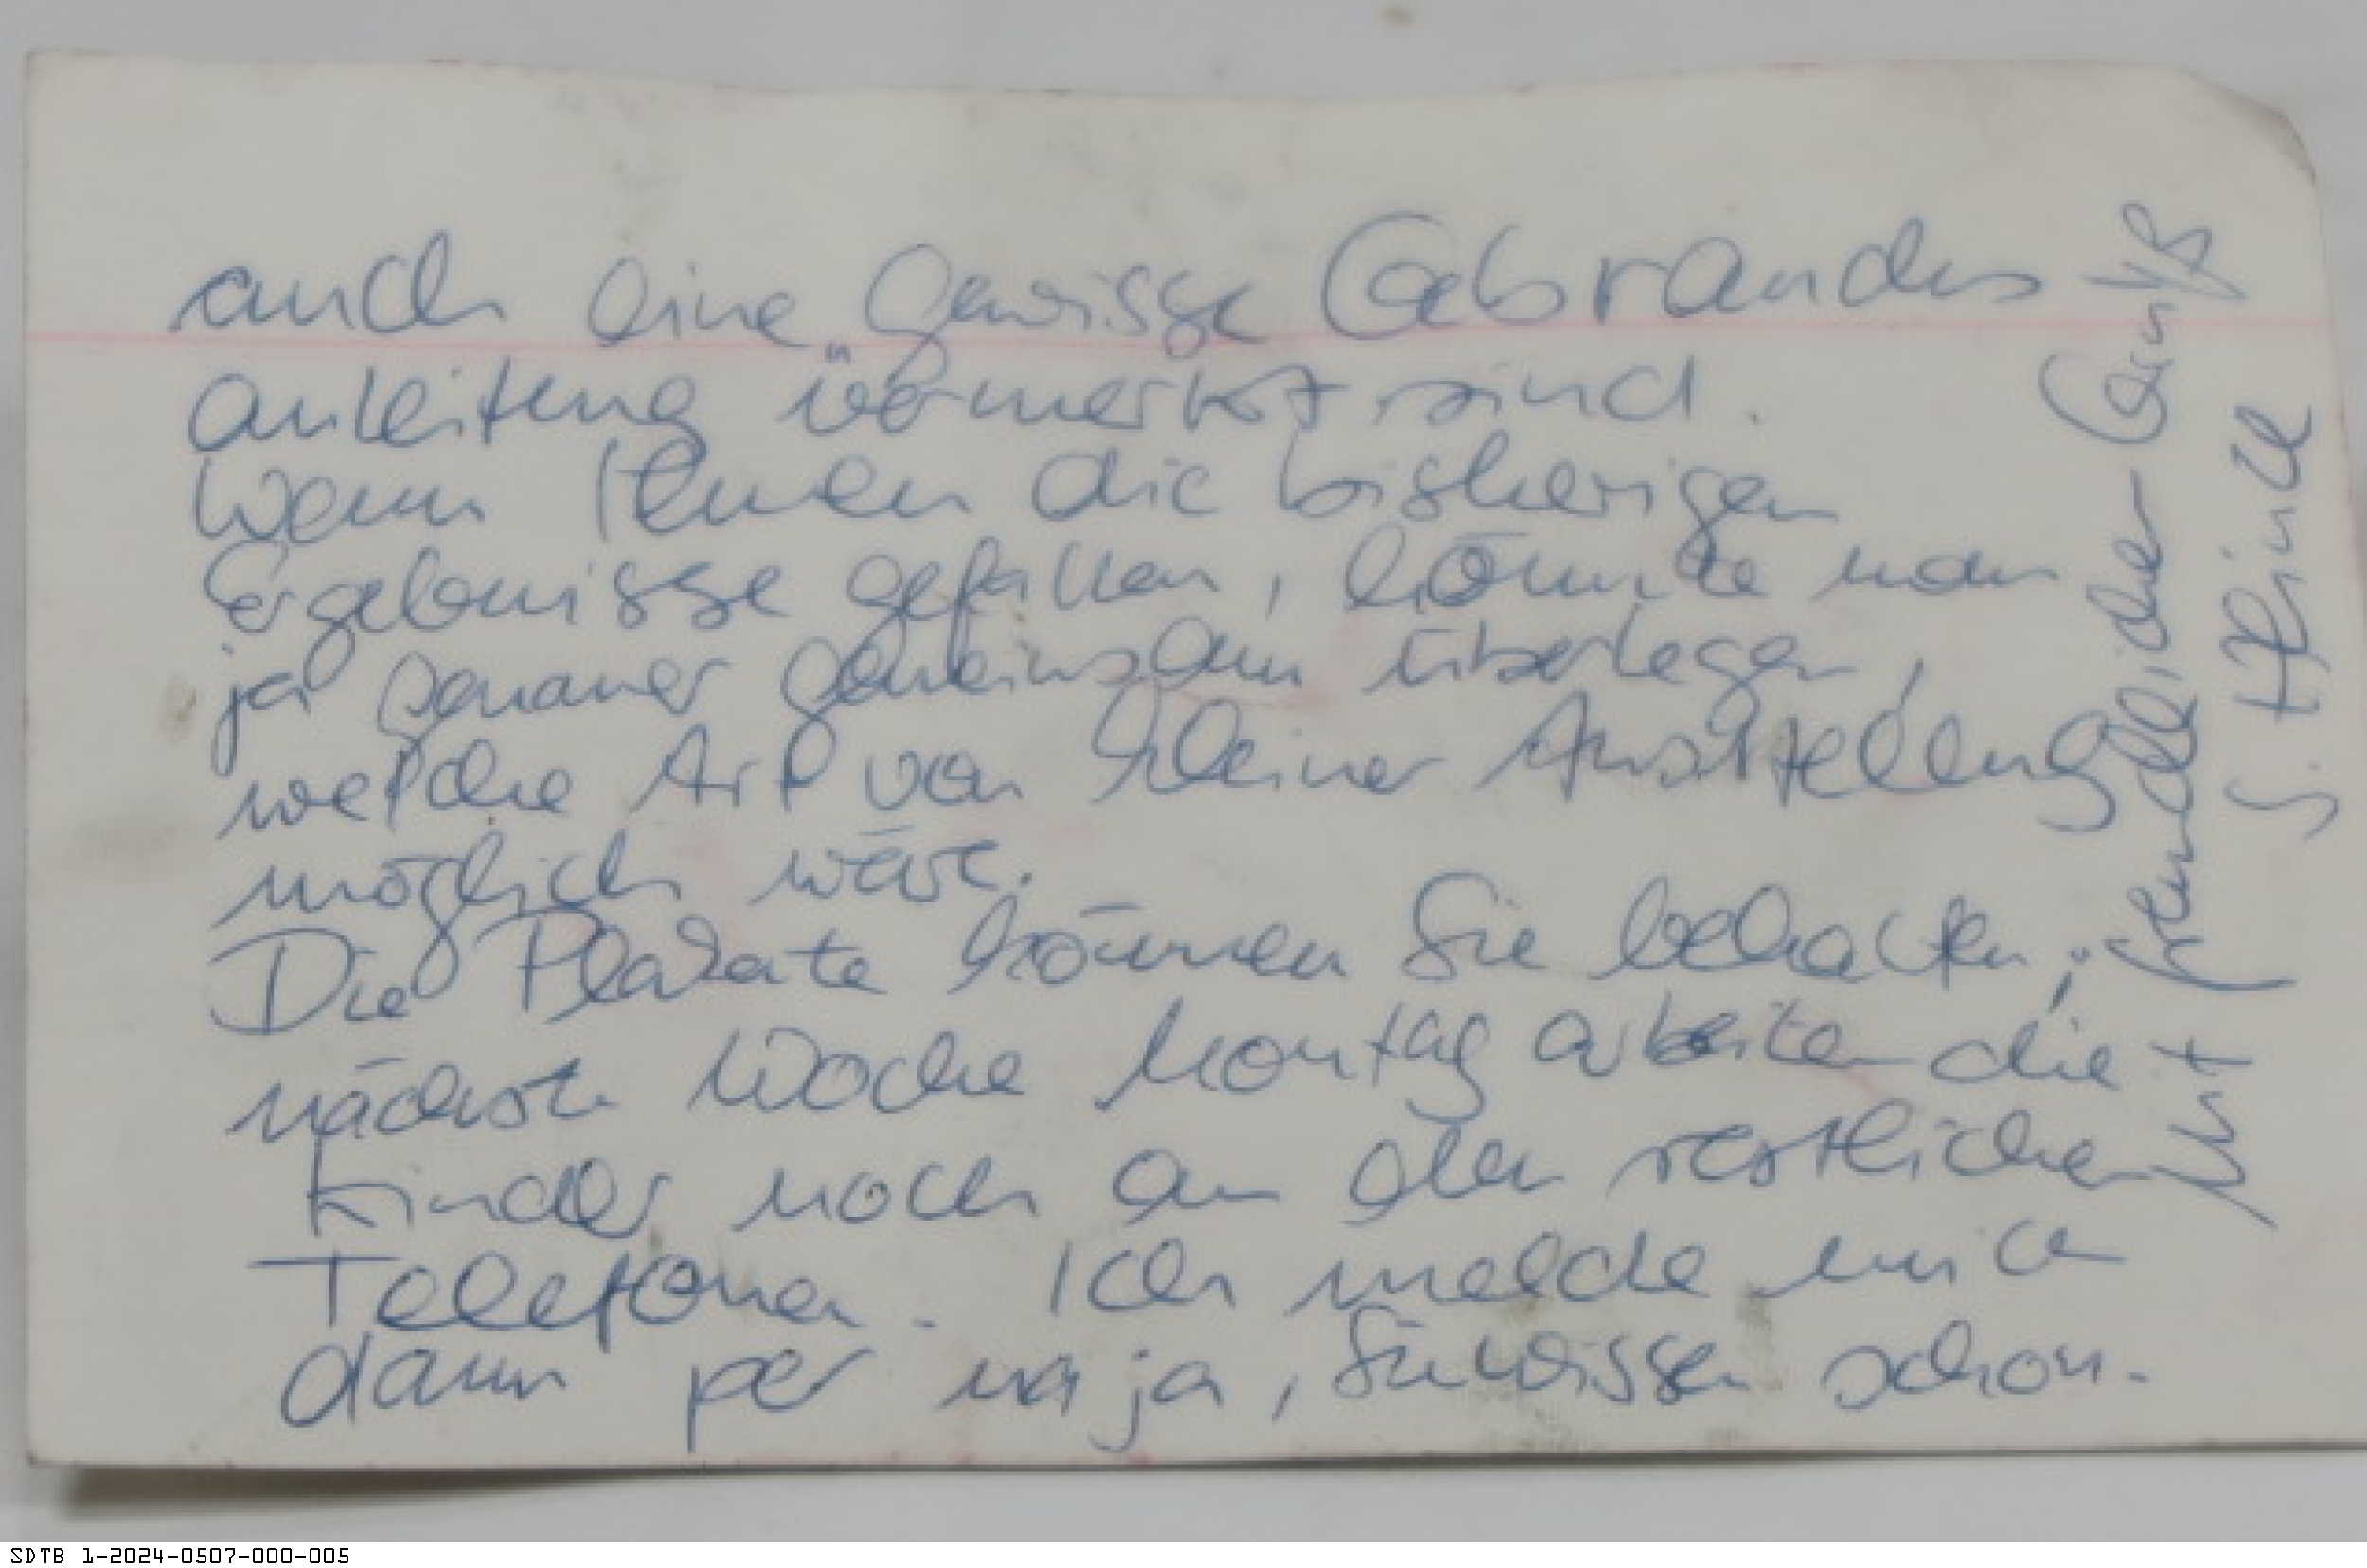 auch eine gewisse Gebrauchs
anleitung vermerkt sind.
Wenn Ihnen die bisherigen
Ergebnisse gefallen, könnte man
ja genauer gemeinsam überlegen,
welche Art von kleiner Ausstellung
möglich wäre.
Die Plakate können Sie behalten;
nächste Woche Montag arbeiten die
Kinder noch an den restlichen
Telefonen. Ich melde mich
dann per na ja, Sie wissen schon.
Mit freundlicher Gruß
SDTB 1-2024-0507-000-005